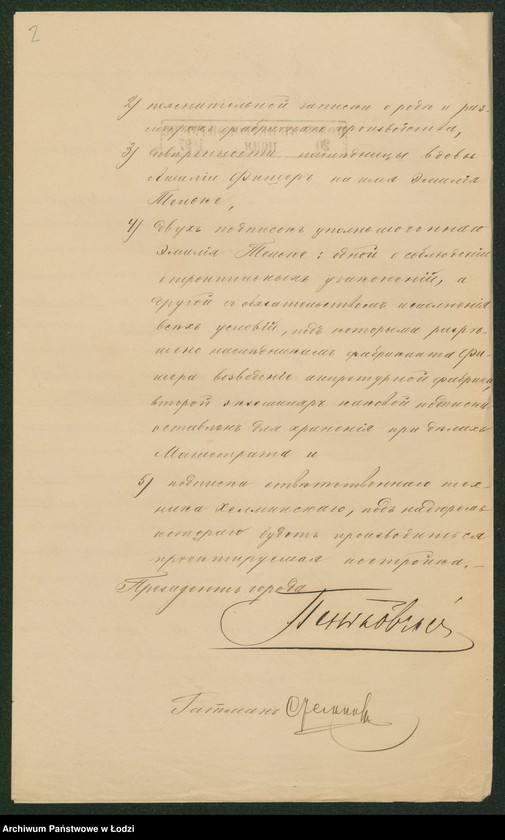 2
2) пояснительной записки о родѣ и раз-
мѣрахъ фабричнаго производства,
3) довѣренности наслѣдницы вдовы
Амаліи Фишеръ на имя Эмилія
4) двухъ подписокъ уполномоченнаго
Эмилія : одной о соблюденіи
строительныхъ узаконеній, а
другой съ обязательствомъ исполненія
всѣхъ условій, подъ которыми разрѣ-
шено наслѣдникамъ фабриканта Фи-
шера возведеніе аппретурной фабрики,
второй экземпляръ каковой подписки
оставленъ для храненія при дѣлахъ
Магистрата и
5) подписки отвѣтственнаго тех-
ника Хелминскаго, подъ надзоромъ
котораго будетъ производиться
проэктируемая постройка.—
Президентъ города
Пеньковскій
Archiwum Państwowe w Łodzi